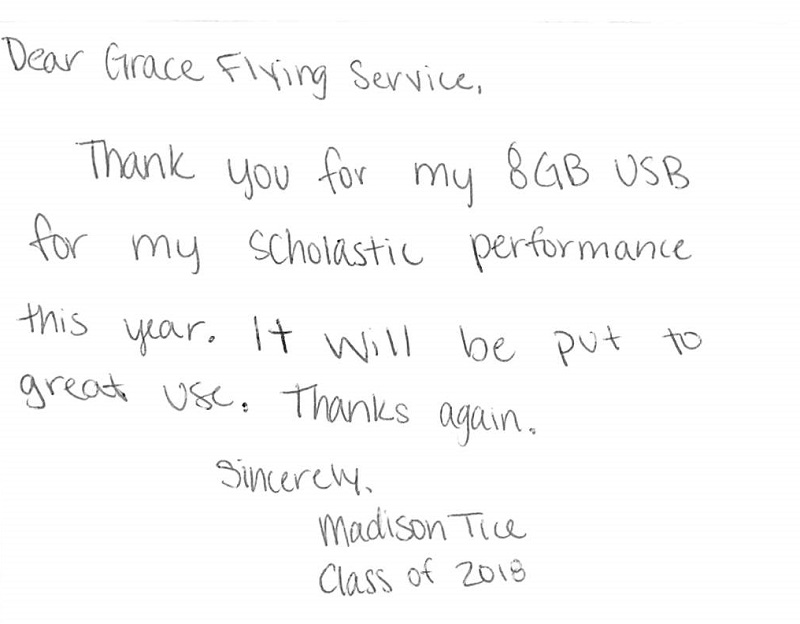 Dear Grace Flying Service,
Thank you for my 8GB USB
for my scholastic performance
this year. It will be put to
great use. Thanks again.
Sincerely,
Madison Tice
Class of 2018